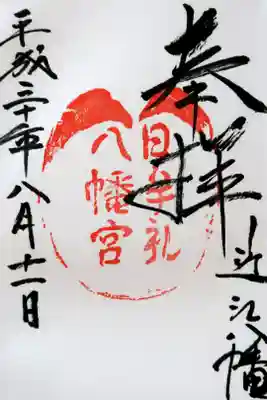 奉拝
近江八幡
日牟礼
八幡宮
平成三十年八月十二日